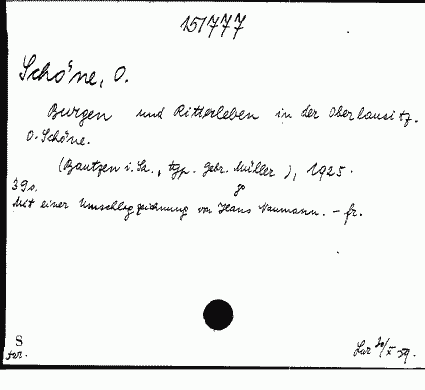 151777
Schöne, O.
Burgen und Ritterleben in der Oberlausitz.
O. Schöne.
(Bautzen i. Sa., typ. Gebr. Müller), 1925.
39 s. 8°
Mit einer Umschlagzeichnung von Hans Naumann. – fr.
S
Lar 30/X 59.